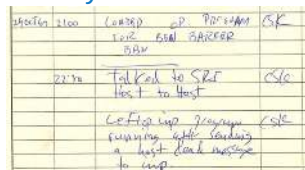 29 Oct 69 2100 LOADED OP. PROGRAM CSK
FOR BEN BARKER
BBN
22:30 Talked to SRI CSK
Host to Host
Left op. imp. program CSK
running after sending
a host dead message
to imp.